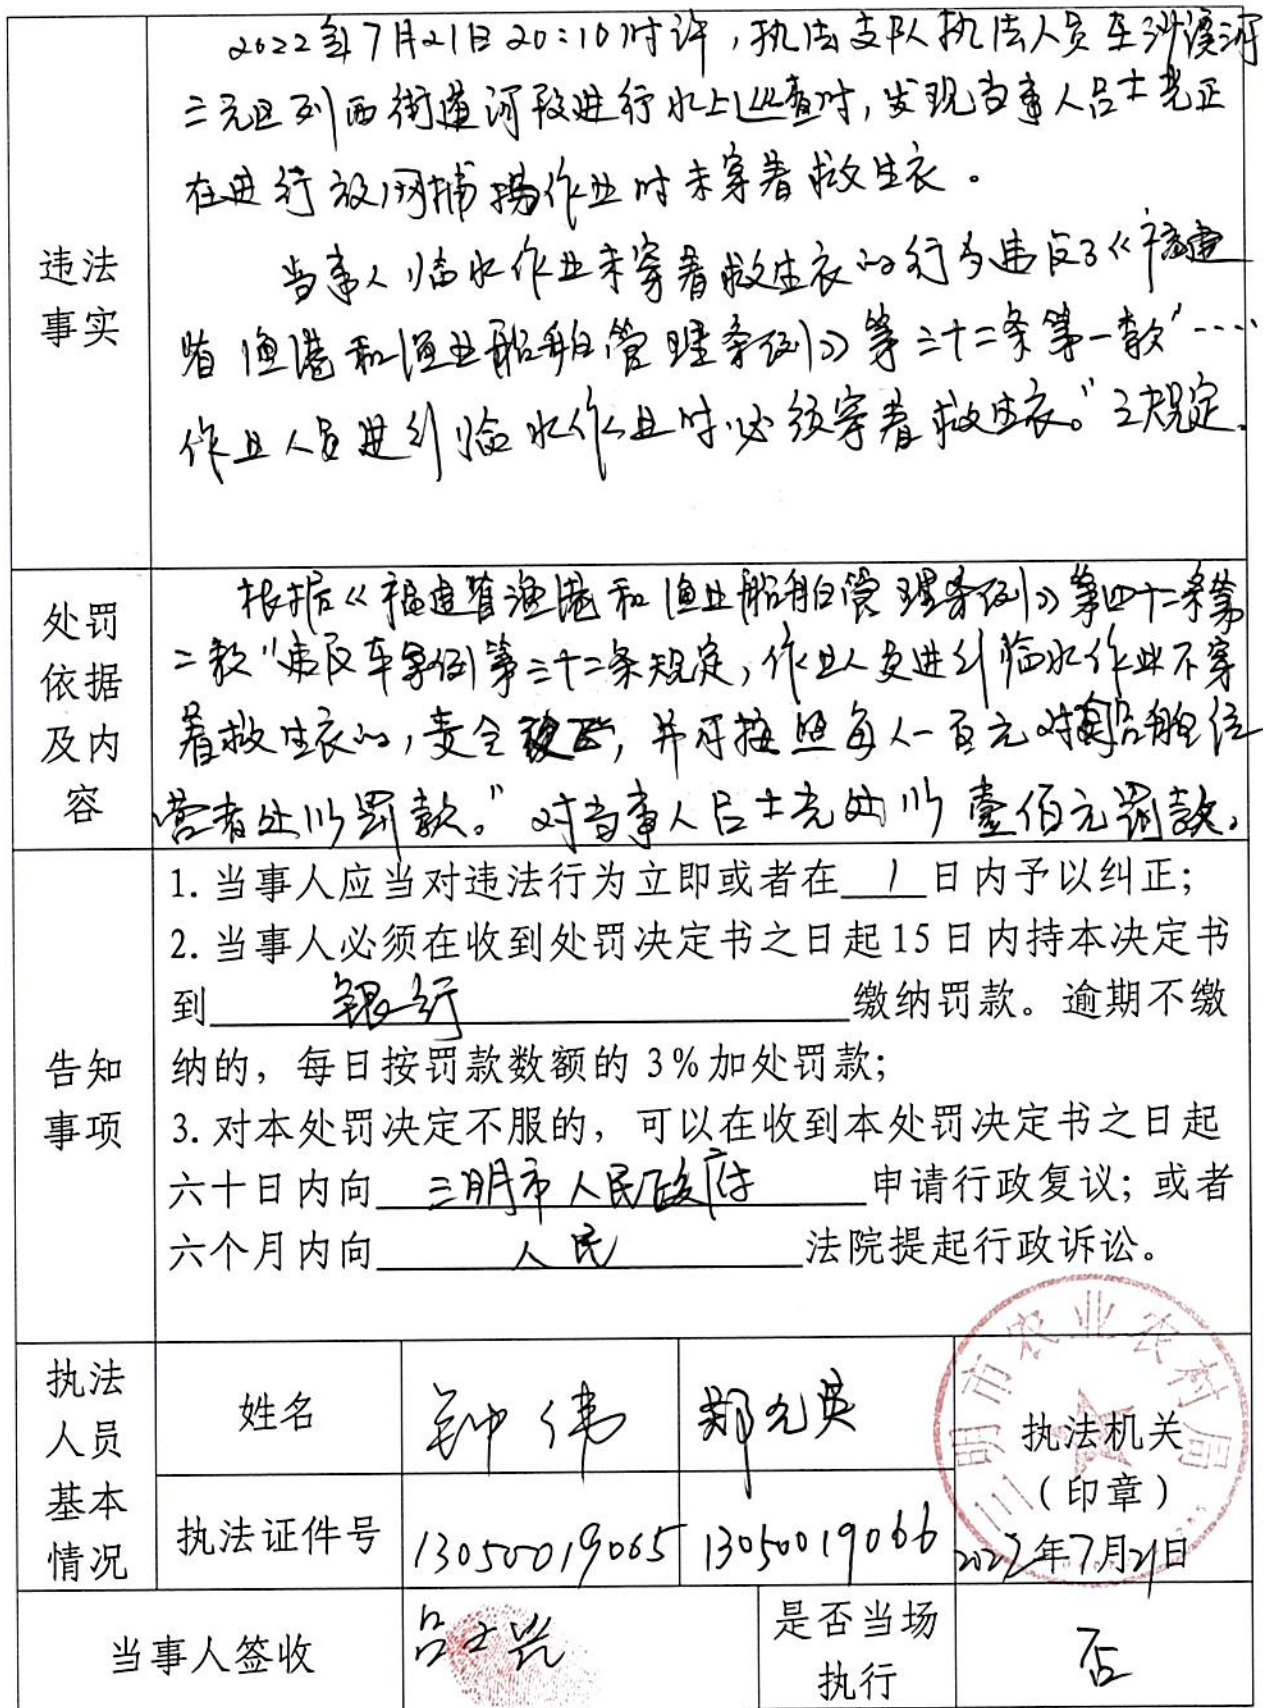 违法
事实
2022年7月21日20:10时许，执法支队执法人员在沙溪河
三元区列西街道河段进行水上巡查时，发现当事人吕士光正
在进行放网捕捞作业时未穿着救生衣。
当事人临水作业未穿着救生衣的行为违反了《福建
省渔港和渔业船舶管理条例》第三十二条第一款"……
作业人员进行临水作业时必须穿着救生衣。"之规定。
处罚
依据
及内
容
根据《福建省渔港和渔业船舶管理条例》第四十二条第
二款"违反本条例第三十二条规定，作业人员进行临水作业不穿
着救生衣的，责令改正，并可按照每人一百元对船舶经
营者处以罚款。"对当事人吕士光处以壹佰元罚款。
告知
事项
1. 当事人应当对违法行为立即或者在1日内予以纠正；
2. 当事人必须在收到处罚决定书之日起15日内持本决定书
到银行缴纳罚款。逾期不缴
纳的，每日按罚款数额的3%加处罚款；
3. 对本处罚决定不服的，可以在收到本处罚决定书之日起
六十日内向三明市人民政府申请行政复议；或者
六个月内向人民法院提起行政诉讼。
执法
人员
基本
情况
姓名 钟伟 郑光英
执法证件号 13050019065 13050019066
三明市农业农村局
执法机关
（印章）
2022年7月21日
当事人签收 吕士光
是否当场
执行
否